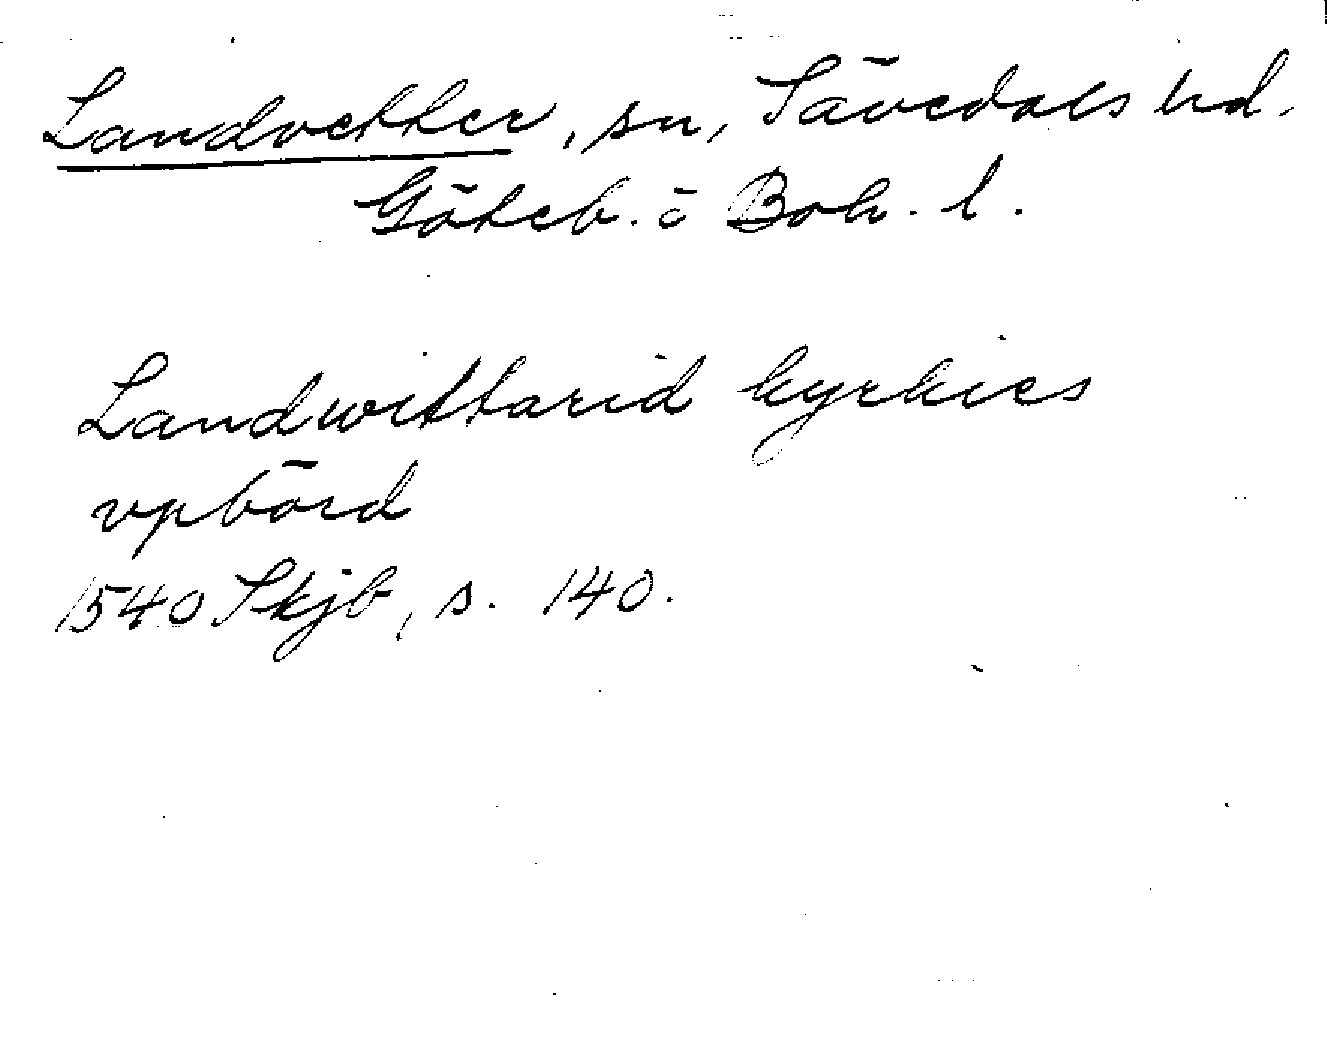 Landvetter, sn, Sävedals hd.
Göteb. o Boh. l.
Landwittarid kyrkies
vpbörd
1540 Skjb, s. 140.